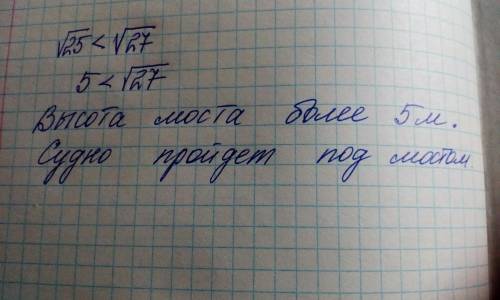 √25 < √27
5 < √27
Высота моста более 5м.
Судно пройдет под мостом.